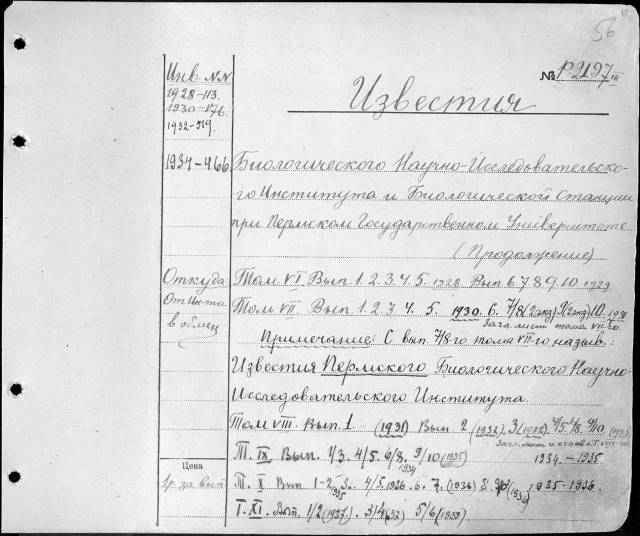 56
№ Р2197 III
Известия
Инв. NN
1928-113.
1930-176.
1932-319.
1934-466
Биологического Научно-Исследовательско-
го Института и Биологической станции
при Пермском Государственном Университете
(Продолжение)
Откуда
От Инта
в обмен
Том VI. Вып. 1. 2. 3. 4. 5. 1928. Вып 6. 7. 8. 9. 10. 1929
Том VII Вып 1. 2. 3 4. 5. 1930. 6. 7/8 (2 экз) 9 (2 экз) 10. 1931
Загл. лист тома VII-го.
Примечание: С вып. 7/8-го тома VII-го назыв.:
Известия Пермского Биологического Научно-
Исследовательского Института.
Том VIII. Вып. 1 (1931) Вып. 2 (1932). 3 (1932) 4/5. 6/8. 9/10 (1933)
Загл. лист и
Т. IX. Вып. 1/3. 4/5. 6/8. 9/10 (1935) 1934. - 1935
1934
Цена
1р. за вып
Т. X Вып 1-2, 3. 4/5. 1936. 6. 7. (1936) 8. (1936) 1935-1936.
1935
Т. XI. Вып. 1/2 (1937.) 3/4 (37) 5/6 (1938)